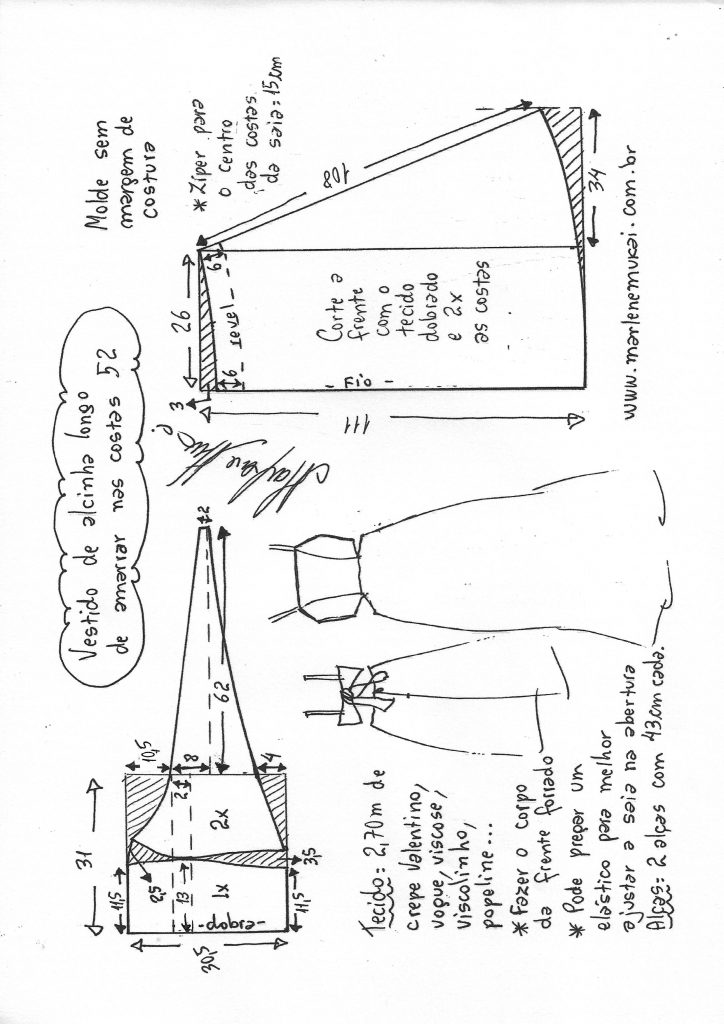 Vestido de alcinha longo
de amarrar nas costas 52
Molde sem
margem de
costura
* Zíper para
o centro
das costas
da saia: 15cm
31
10,5
8
4
2
62
2
2x
1x
2,5
3,5
11,5
13
11,5
-dobra-
30,5
3
26
6
6
-revel-
108
34
111
- Fio -
Corte a
frente
com o
tecido
dobrado
e 2x
as costas
www.marlenemukai.com.br
Tecido: 2,70m de
crepe Valentino,
voque, viscose,
viscolinho,
popeline...
* Fazer o corpo
da frente forrado
* Pode pregar um
elástico para melhor
ajustar a saia na abertura
Alças: 2 alças com 43cm cada.